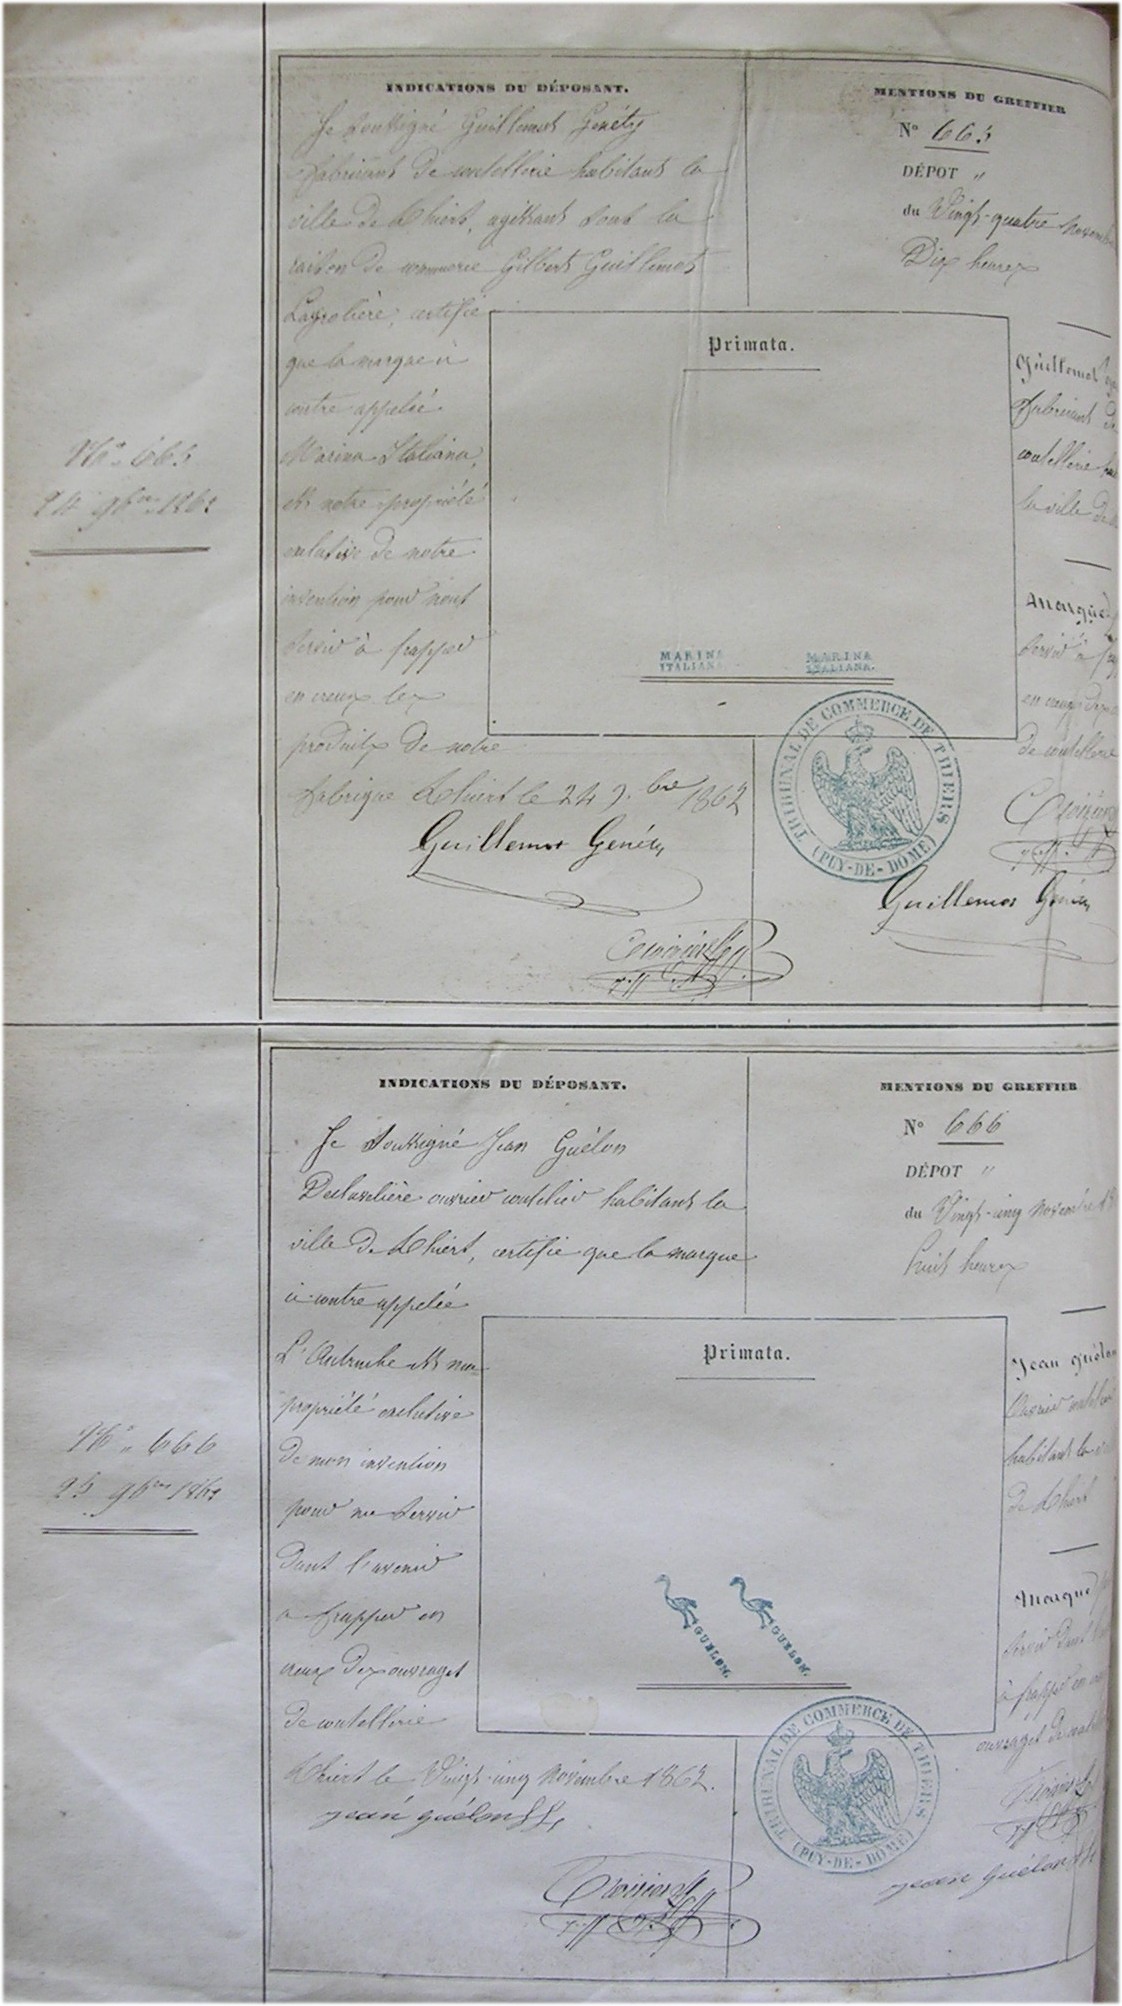 INDICATIONS DU DÉPOSANT.
Je soussigné Guillemot Genéty
fabricant de coutellerie habitant la
ville de Thiers, agissant sous la
raison de commerce Gilbert Guillemot
Lagrolière, certifie
que la marque ci
contre appelée
Marina Italiana,
est notre propriété
exclusive de notre
invention pour nous
servir à frapper
en creux les
produits de notre
fabrique Thiers le 24 9.bre 1862
Guillemot Genéty
MENTIONS DU GREFFIER
N° 665
DÉPOT "
du Vingt-quatre novemb
Dix heures
Primata.
MARINA
ITALIANA.
MARINA
ITALIANA.
Guillemot
fabricant de
coutellerie
la ville de
Marque
servir à
en creux
de coutellerie
TRIBUNAL DE COMMERCE DE THIERS
(PUY-DE-DOME)
Guillemot Genéty
N° 665
24 9bre 1862
INDICATIONS DU DÉPOSANT.
Je soussigné Jean Guélon
ouvrier coutelier habitant la
ville de Thiers, certifie que la marque
ci contre appelée
L'Autruche est ma
propriété exclusive
de mon invention
pour me servir
dans l'avenir
a frapper en
creux des ouvrages
de coutellerie
Thiers le Vingt-cinq novembre 1862.
jean guélon
MENTIONS DU GREFFIER
N° 666
DÉPOT "
du Vingt-cinq novembre
huit heures
Primata.
GUELON.
GUELON.
Jean Guélon
Ouvrier
habitant la
de Thiers
Marque
servir dans
à frapper en
ouvrages de
TRIBUNAL DE COMMERCE DE THIERS
(PUY-DE-DOME)
jean guélon
N° 666
25 9bre 1862